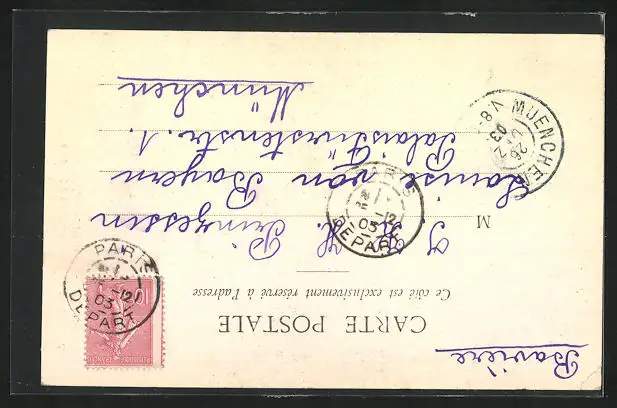 Bavière
CARTE POSTALE
Ce côté est exclusivement réservé à l'adresse
M
I. K. H. Prinzessin
Louise von Bayern
Palais Fürstenstr. 1.
München
PARIS
DEPART
-12
03
PARIS
DEPART
-12
03
MUENCHEN
26
03
V.8-
10